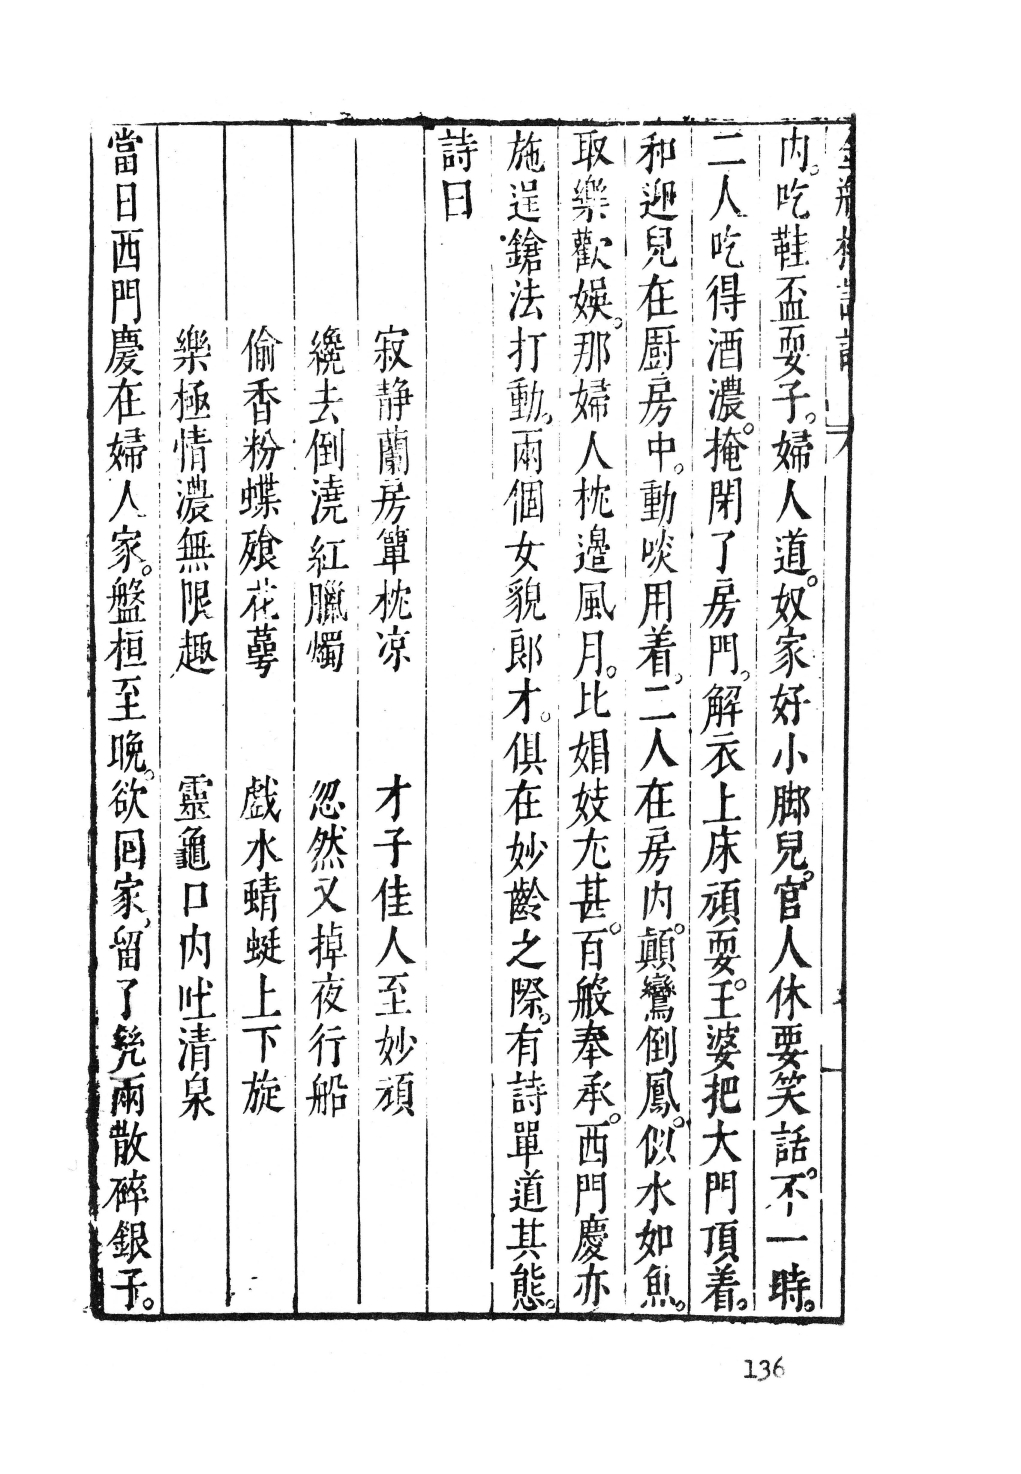 金瓶梅詞話
内。吃鞋盃耍子。婦人道。奴家好小脚兒。官人休要笑話。不一時。
二人吃得酒濃。掩閉了房門。解衣上床頑耍。王婆把大門頂着。
和迎兒在厨房中。動啖用着。二人在房内。顛鸞倒鳳。似水如魚。
取樂歡娛。那婦人枕邊風月。比娼妓尤甚。百般奉承。西門慶亦
施逞鎗法打動。兩個女貌郎才。俱在妙齡之際。有詩單道其態。
詩曰
寂静蘭房簟枕凉　才子佳人至妙頑
纔去倒澆紅臘燭　忽然又掉夜行船
偷香粉蝶飱花蕚　戲水蜻蜓上下旋
樂極情濃無限趣　靈龜口内吐清泉
當日西門慶在婦人家。盤桓至晚。欲回家。留了幾兩散碎銀子。
136